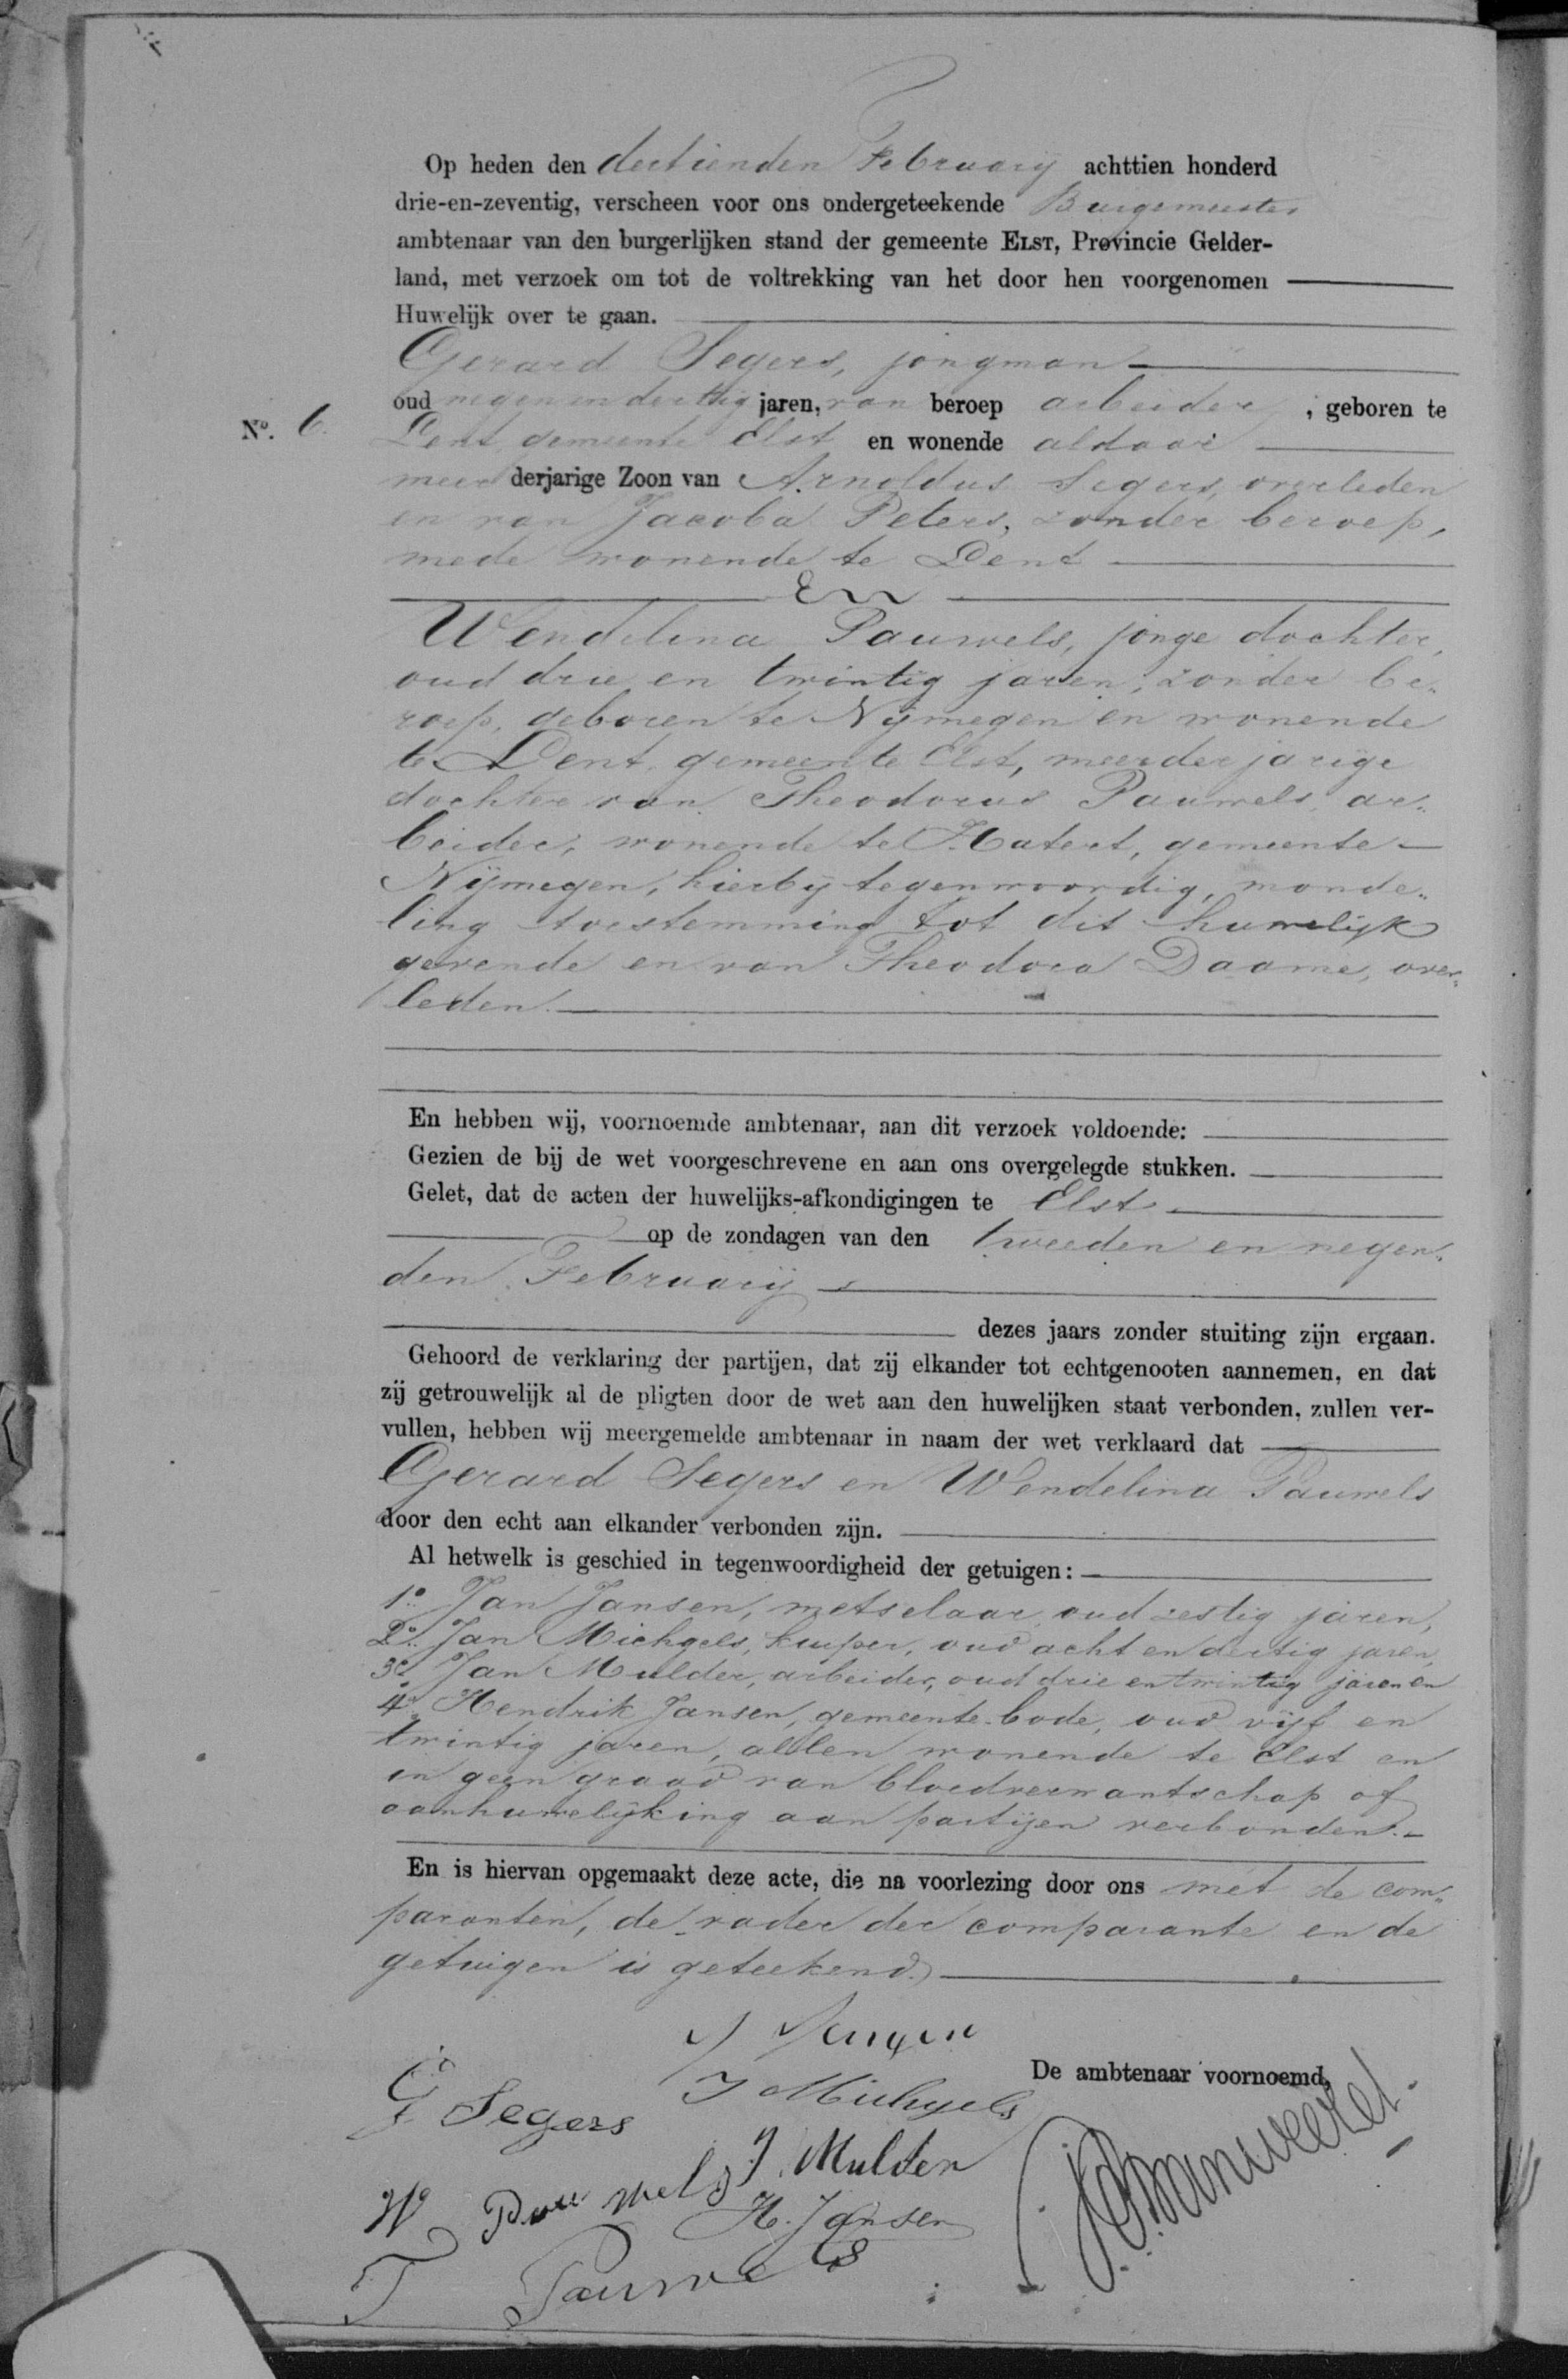 Op heden den dertienden February achttien honderd
drie-en-zeventig, verscheen voor ons ondergeteekende Burgemeester
ambtenaar van den burgerlijken stand der gemeente ELST, Provincie Gelder-
land, met verzoek om tot de voltrekking van het door hen voorgenomen
Huwelijk over te gaan.
Gerard Segers, jongman
oud negen en dertig jaren, van beroep arbeider, geboren te
No. 6. Lent gemeente Elst en wonende aldaar
meerderjarige Zoon van Arnoldus Segers, overleden
en van Jacoba Peters, zonder beroep,
mede wonende te Lent
En
Wendelina Pauwels, jonge dochter,
oud drie en twintig jaren, zonder be-
roep, geboren te Nijmegen en wonende
te Lent, gemeente Elst, meerderjarige
dochter van Theodorus Pauwels, ar-
beider, wonende te Hatert, gemeente
Nijmegen, hierbij tegenwoordig, monde-
ling toestemming tot dit huwelijk
gevende en van Theodora Daame, over-
leden.
En hebben wij, voornoemde ambtenaar, aan dit verzoek voldoende:
Gezien de bij de wet voorgeschrevene en aan ons overgelegde stukken.
Gelet, dat de acten der huwelijks-afkondigingen te Elst
op de zondagen van den tweeden en negen-
den February
dezes jaars zonder stuiting zijn ergaan.
Gehoord de verklaring der partijen, dat zij elkander tot echtgenooten aannemen, en dat
zij getrouwelijk al de pligten door de wet aan den huwelijken staat verbonden, zullen ver-
vullen, hebben wij meergemelde ambtenaar in naam der wet verklaard dat
Gerard Segers en Wendelina Pauwels
door den echt aan elkander verbonden zijn.
Al hetwelk is geschied in tegenwoordigheid der getuigen:
1o. Jan Jansen, metselaar, oud zestig jaren,
2o. Jan Michgels, kuiper, oud acht en dertig jaren,
3o. Jan Mulder, arbeider, oud drie en twintig jaren en
4o. Hendrik Jansen, gemeente-bode, oud vijf en
twintig jaren, allen wonende te Elst en
in geen graad van bloedverwantschap of
aanhuwelijking aan partijen verbonden.
En is hiervan opgemaakt deze acte, die na voorlezing door ons met de com-
paranten, de vader der comparante en de
getuigen is geteekend.
J Jansen
De ambtenaar voornoemd,
G Segers
J Michgels
J. Mulder
W Pauwels
H. Jansen
T Pauwels